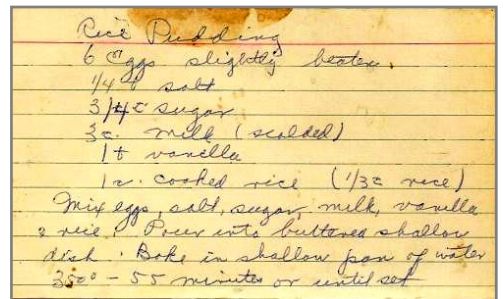 Rice Pudding
6 Eggs slightly beaten.
1/4 t salt
3/4 c sugar
3 c. milk (scalded)
1 t vanilla
1 c. cooked rice (1/3 c rice)
Mix eggs, salt, sugar, milk, vanilla
& rice. Pour into buttered shallow
dish. Bake in shallow pan of water
350° - 55 minutes or until set